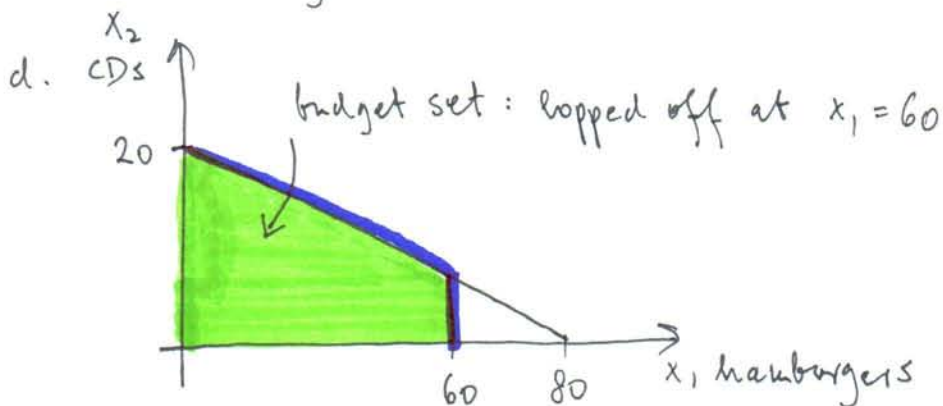 X₂
d. CDs
budget set : lopped off at x₁ = 60
20
60 80 x₁ hamburgers